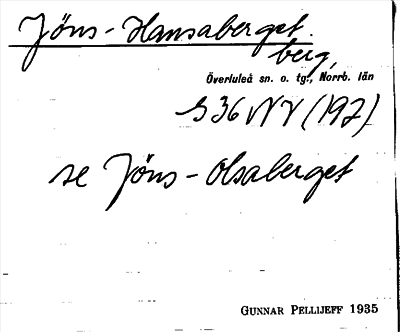 Jöns-Hansaberget.
berg,
Överluleå sn. o. tg., Norrb. län
S 36 NV (192)
se Jöns-Olsaberget
GUNNAR PELLIJEFF 1935